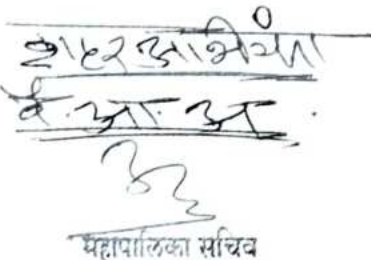 शहर अभियंता
वै.आ.अ.
महापालिका सचिव